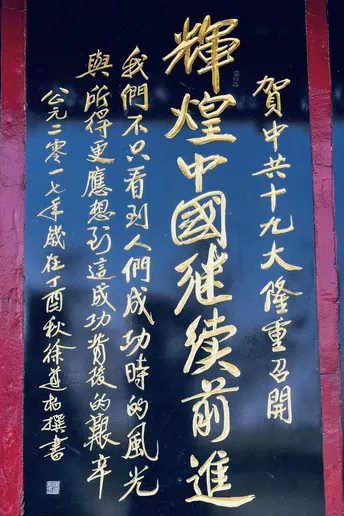 賀中共十九大隆重召開
輝煌中國继续前進
我們不只看到人們成功時的風光
與所得更應想到這成功背後的艱辛
公元二零一七年歲在丁酉秋徐道
撰書